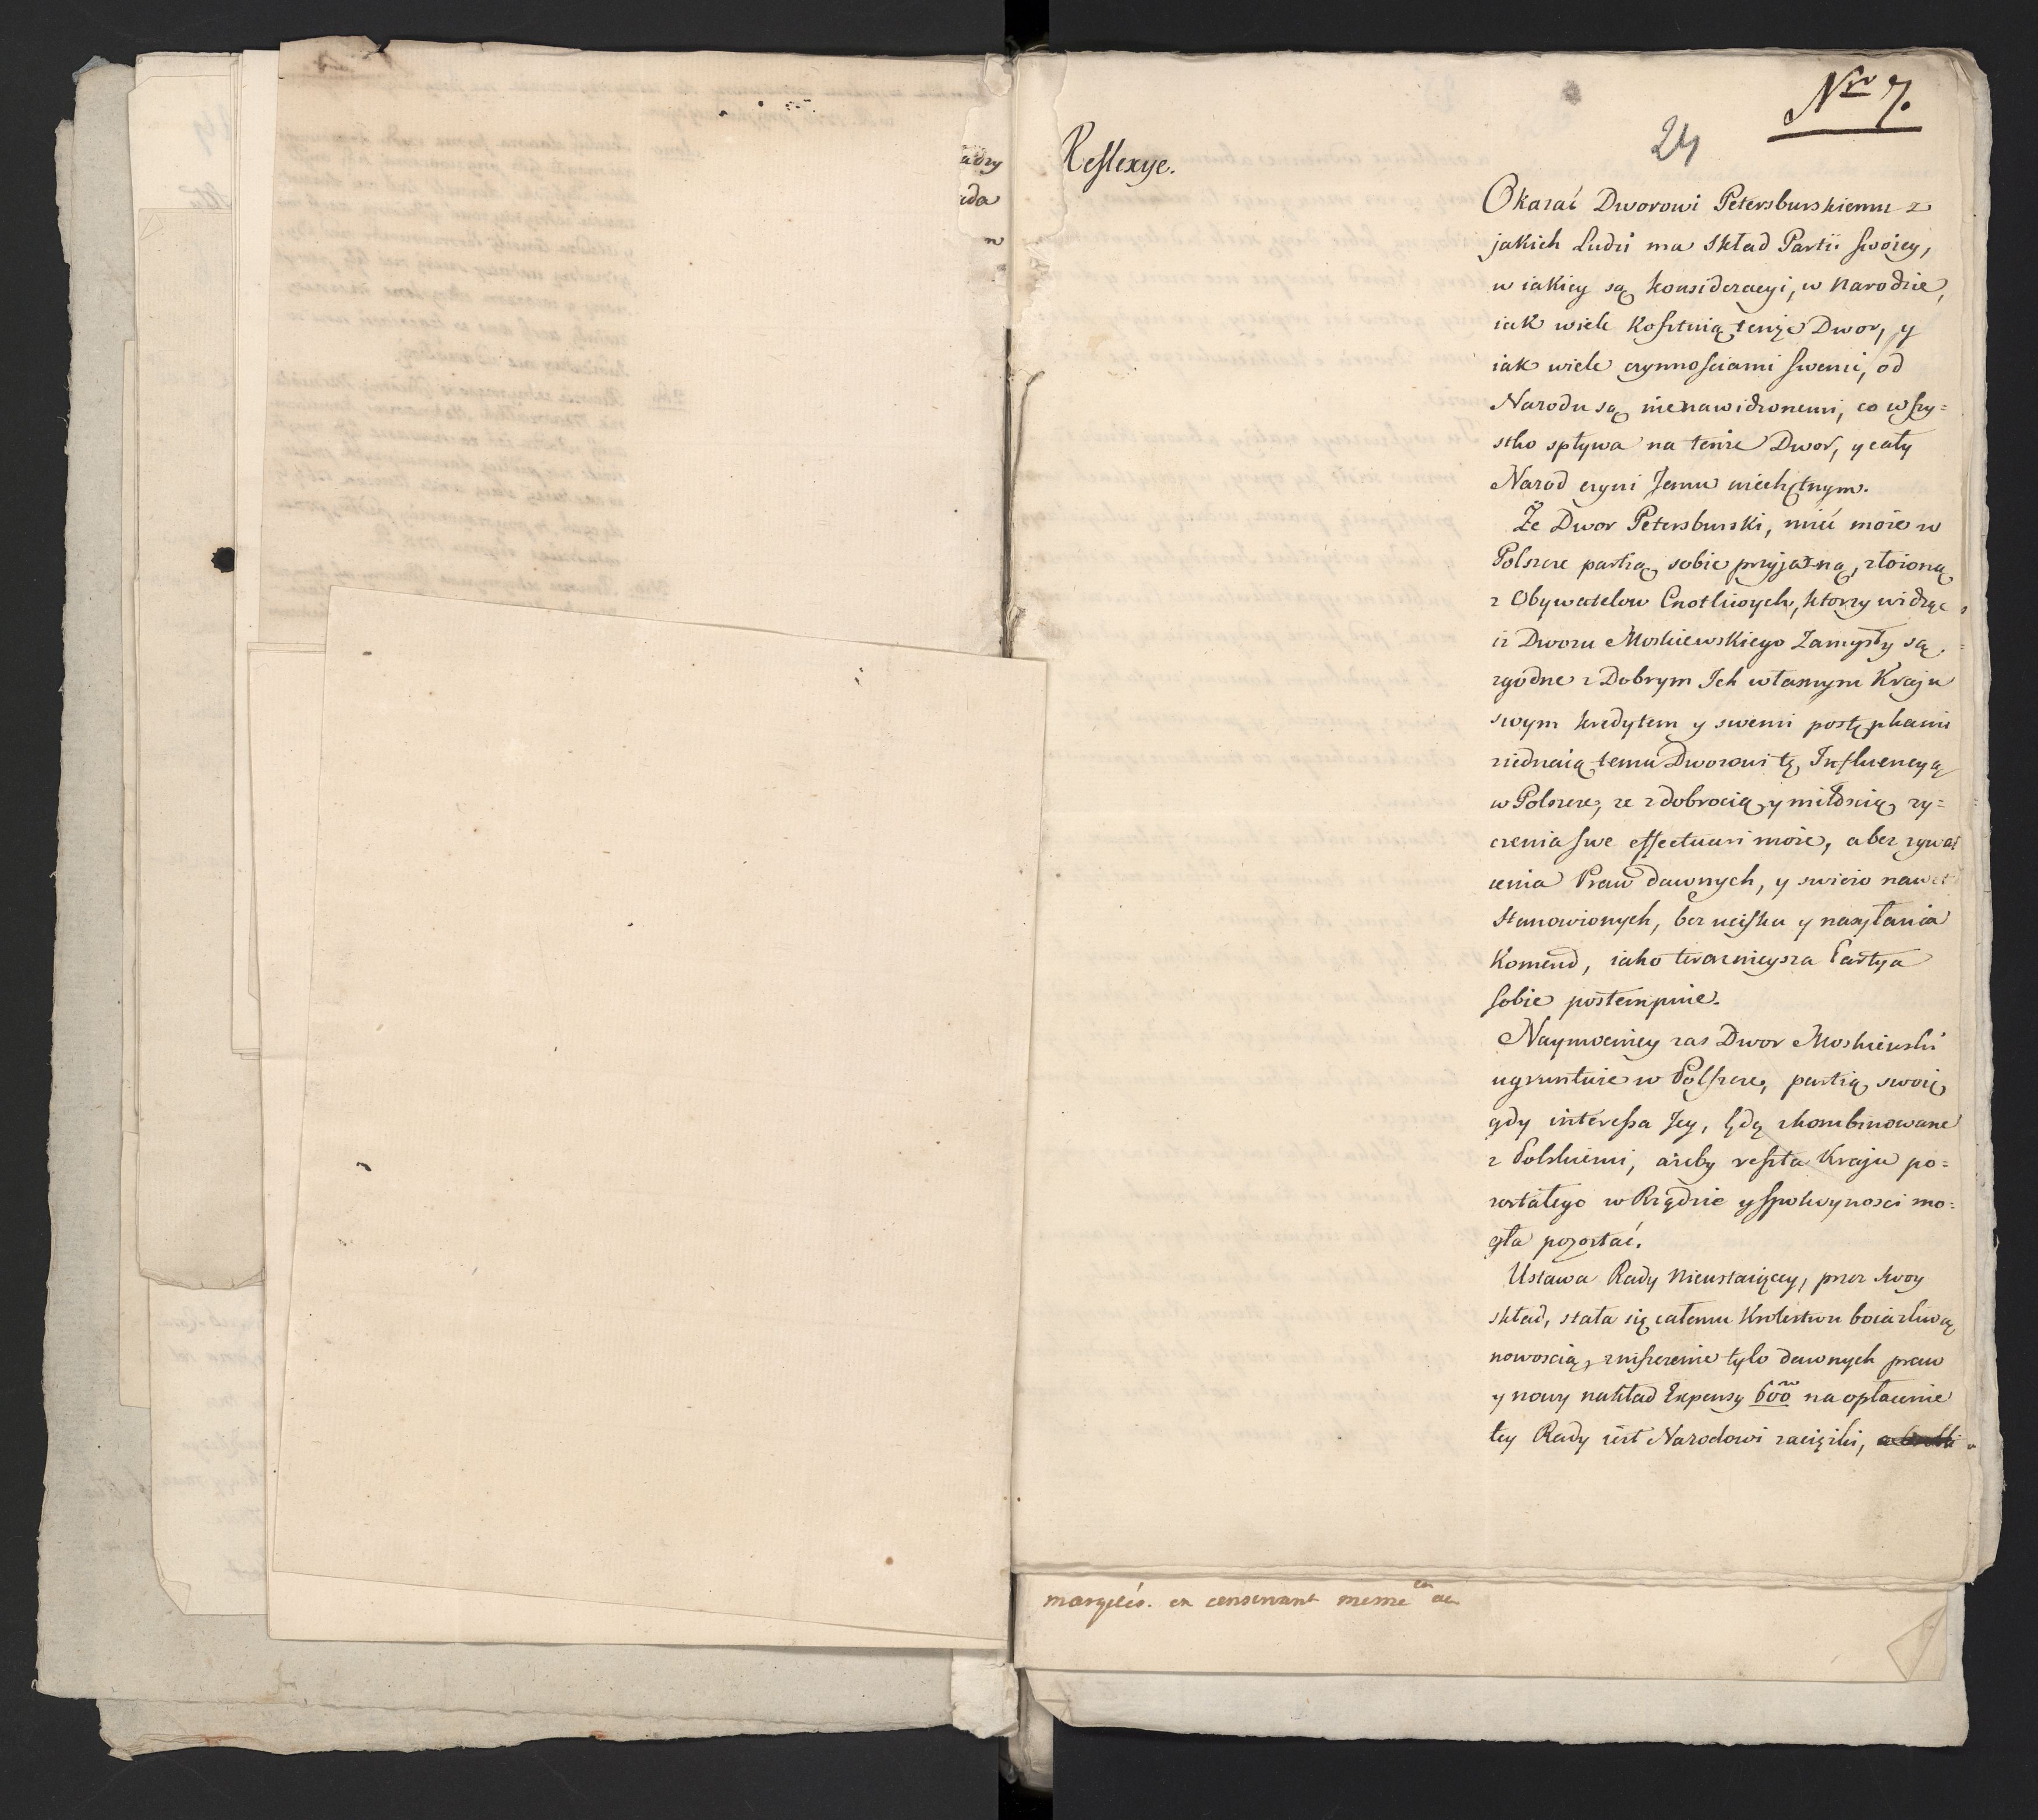 Nro 7.
24
Reflexye.
Okazać Dworowi Petersburskiemu z
jakich Ludzi ma Skład Partii swoiey,
w iakiey są konsideracyi, w Narodzie,
iak wiele kosztuią tenże Dwor, y
iak wiele czynnościami swemi, od
Narodu są nienawidzonemi, co wszy=
stko spływa na tenże Dwor, y cały
Narod czyni Jemu niechętnym.
Że Dwor Petersburski, mieć może w
Polszcze partią sobie przyjazną, złożoną
z Obywatelow Cnotliwych, ktorzy widząc
iż Dworu Moskiewskiego Zamysły są
zgodne z Dobrym Ich własnym Kraju
swym kredytem y swemi postępkami
ziednaią temu Dworowi tę Influencyą
w Polszcze, że z dobrocią y miłością ży=
czenia swe effectuari może, a bez zgwał
cenia Praw dawnych, y świeżo nawet
Stanowionych, bez ucisku y nasyłania
Komend, iako teraznieysza Partya
sobie postempuie.
Naymocniey zas Dwor Moskiewski
ugruntuie w Polszcze, partią swoię
gdy interessa Jey, będą zkombinowane
z Polskiemi, ażeby reszta Kraju po=
zostałego w Rządzie y spokoynosci mo=
gła pozostać.
Ustawa Rady Nieustaiącey, przez swoy
skład, stała się całemu Krolestwu boiaźliwą
nowością, zniszczenie tylo dawnych praw
y nowy nakład Expensy 600 na opłacenie
tey Rady iest Narodowi zaciężki,
adzy
ada
w
en
marquées. en conservant meme au